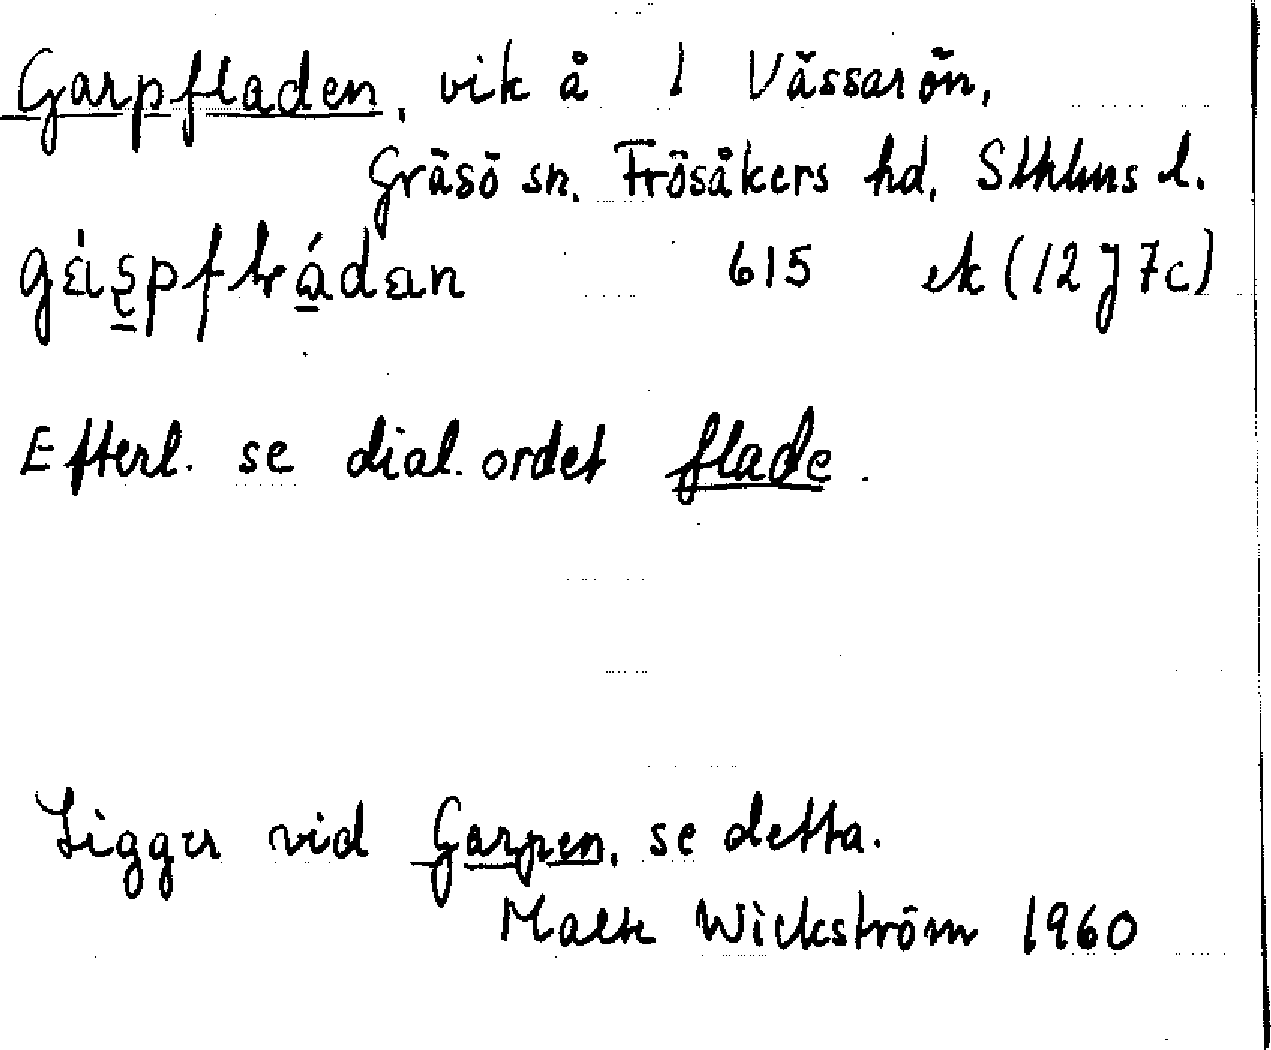 Garpfladen, vik å l Vässarön,
Gräsö sn. Frösåkers hd, Sthlms l.
615 ek (12 J 7c)
Efterl. se dial. ordet flade.
Ligger vid Garpen, se detta.
Malte Wickström 1960